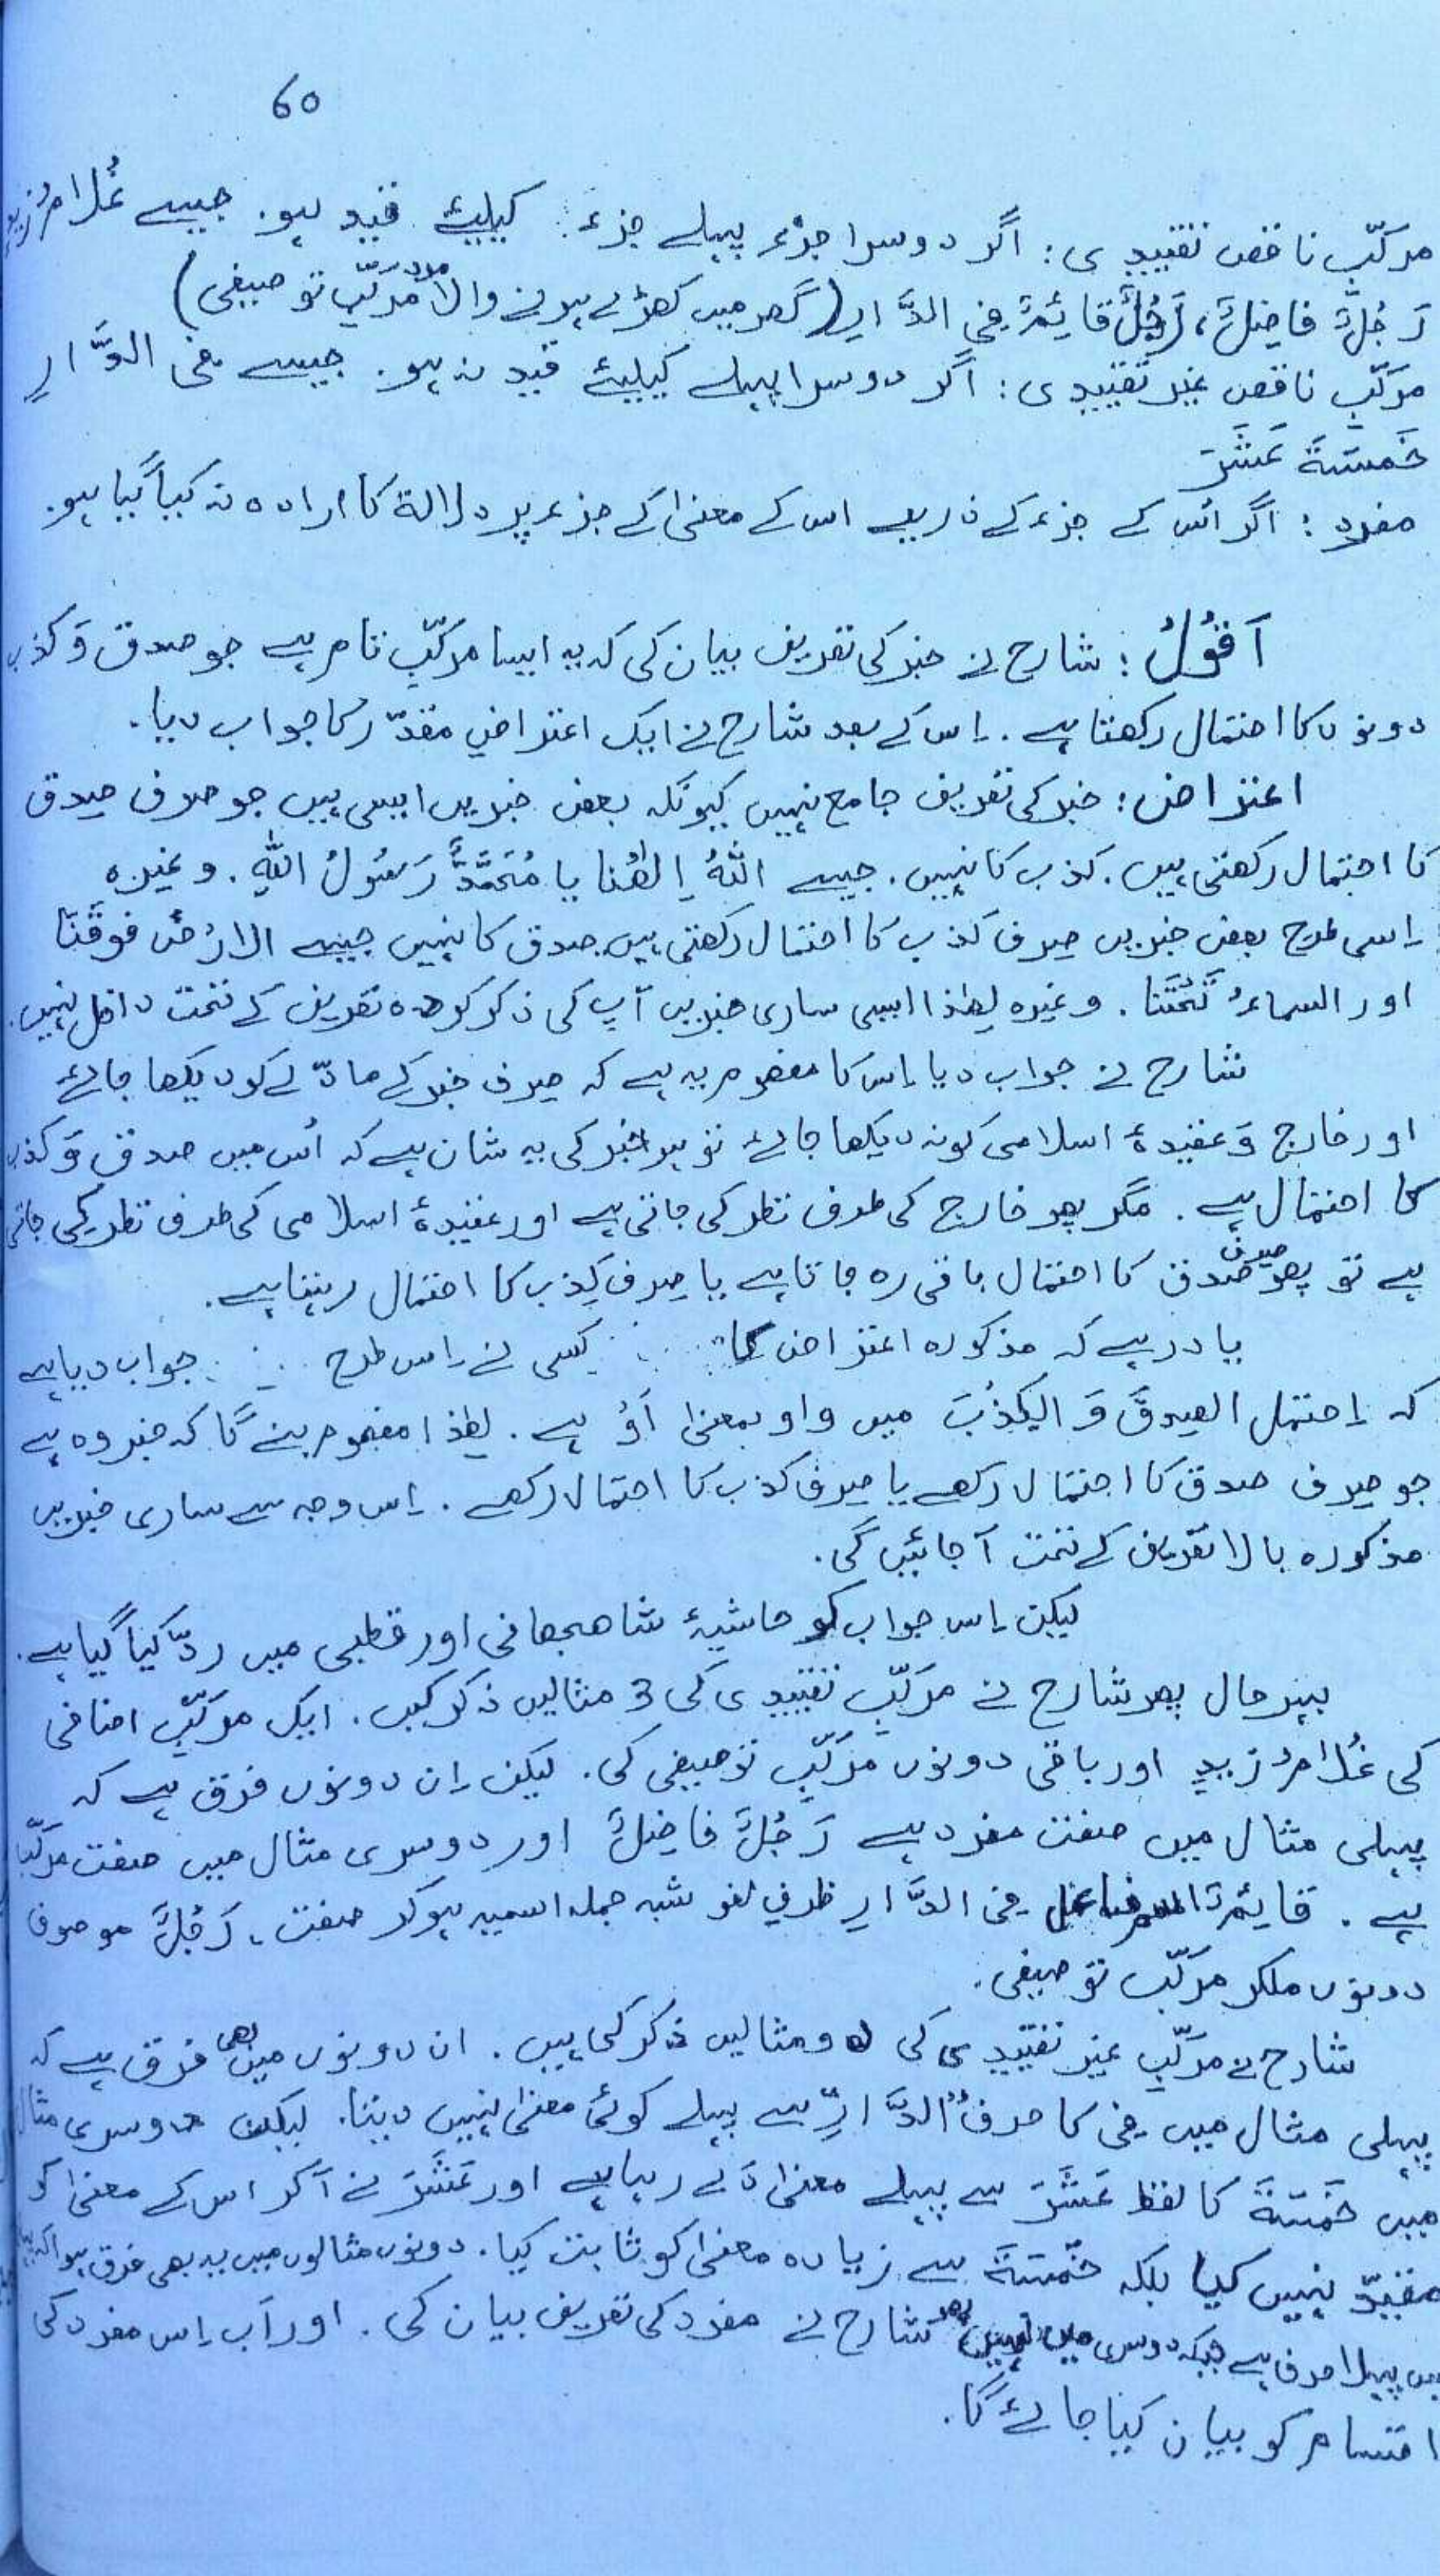 60
مرکّبِ ناقص تقییدی: اگر دوسرا جزء پہلے جزء کیلیئے قید ہو. جیسے غُلامُ زیدٍ
رَجُلٌ فاضِلٌ، رَجُلٌ قائِمٌ فِی الدَّارِ (گھر میں کھڑے ہونے والا مرد مرَکّبِ توصیفی)
مرَکّبِ ناقص غیر تقییدی: اگر دوسرا پہلے کیلیئے قید نہ ہو. جیسے فی الدَّارِ
خَمسَةَ عَشَرَ
مفرد: اگر اُس کے جزء کے ذریعے اس کے معنیٰ کے جزء پر دلالة کا ارادہ نہ کیا گیا ہو.
اَقُوْلُ: شارح نے خبر کی تعریف بیان کی کہ یہ ایسا مرکّبِ تام ہے جو صدق وَ کذب
دونوں کا احتمال رکھتا ہے. اِس کے بعد شارح نے ایک اعتراضِ مقدّر کا جواب دیا.
اعتراض: خبر کی تعریف جامع نہیں کیونکہ بعض خبریں ایسی ہیں جو صرف صِدق
کا احتمال رکھتی ہیں. کذب کا نہیں. جیسے اللّٰهُ اِلٰهُنا یا مُحَمَّدٌ رَسُوْلُ اللّٰهِ. وغیرہ
اِسی طرح بعض خبریں صِرف کذب کا احتمال رکھتی ہیں صدق کا نہیں جیسے الارْضُ فوقَنَا
اور السماءُ تَحْتَنا. وغیرہ لِھٰذا ایسی ساری خبریں آپ کی ذکر کردہ تعریف کے تحت داخل نہیں.
شارح نے جواب دیا اِس کا مفھوم یہ ہے کہ صِرف خبر کے مادّے کو دیکھا جائے
اور خارج وَ عقیدۂ اسلامی کو نہ دیکھا جائے تو ہر خبر کی یہ شان ہے کہ اُس میں صدق وَ کذب
کا احتمال ہے. مگر پھر خارج کی طرف نظر کی جاتی ہے اور عقیدۂ اسلامی کی طرف نظر کی جاتی
ہے تو پھر صرف صدق کا احتمال باقی رہ جاتا ہے یا صِرف کِذب کا احتمال رہتا ہے.
یاد رہے کہ مذکورہ اعتراض کا کسی نے اِس طرح جواب دیا ہے
کہ اِحتمل الصِدقَ وَ الکِذْبَ میں واو بمعنیٰ اَوْ ہے. لِھٰذا مفھوم بنے گا کہ خبر وہ ہے
جو صِرف صدق کا احتمال رکھے یا صِرف کذب کا احتمال رکھے. اِس وجہ سے ساری خبریں
مذکورہ بالا تعریف کے تحت آجائیں گی.
لیکن اِس جواب کو حاشیۂ شاھجھانی اور قطبی میں ردّ کیا گیا ہے.
بہرحال پھر شارح نے مرَکّبِ تقییدی کی 3 مثالیں ذکر کیں. ایک مرکّبِ اضافی
کی غُلامُ زیدٍ اور باقی دونوں مرَکّبِ توصیفی کی. لیکن اِن دونوں فرق ہے کہ
پہلی مثال میں صفت مفرد ہے رَجُلٌ فاضِلٌ اور دوسری مثال میں صفت مرکّب
ہے. قائِمٌ اسم فاعل فی الدَّارِ ظرفِ لغو شبہ جملہ اسمیہ ہوکر صفت، رَجُلٌ موصوف
دونوں ملکر مرَکّب توصیفی.
شارح نے مرَکّبِ غیر تقییدی کی دو مثالیں ذکر کی ہیں. ان دونوں میں بھی فرق ہے کہ
پہلی مثال میں فِی کا حرف "الدَّارِ" سے پہلے کوئی معنیٰ نہیں دیتا. لیکن دوسری مثال
میں خَمْسَةَ کا لفظ عَشَرَ سے پہلے معنیٰ دَے رہا ہے اور عَشَرَ نے آکر اس کے معنیٰ کو
مقیّد نہیں کیا بلکہ خَمْسَةَ سے زیادہ معنیٰ کو ثابت کیا. دونوں مثالوں میں یہ بھی فرق ہوا کہ
میں پہلا حرف ہے جبکہ دوسری میں نہیں پھر شارح نے مفرد کی تعریف بیان کی. اور اَب اِس مفرد کی
اقسام کو بیان کیا جائے گا.